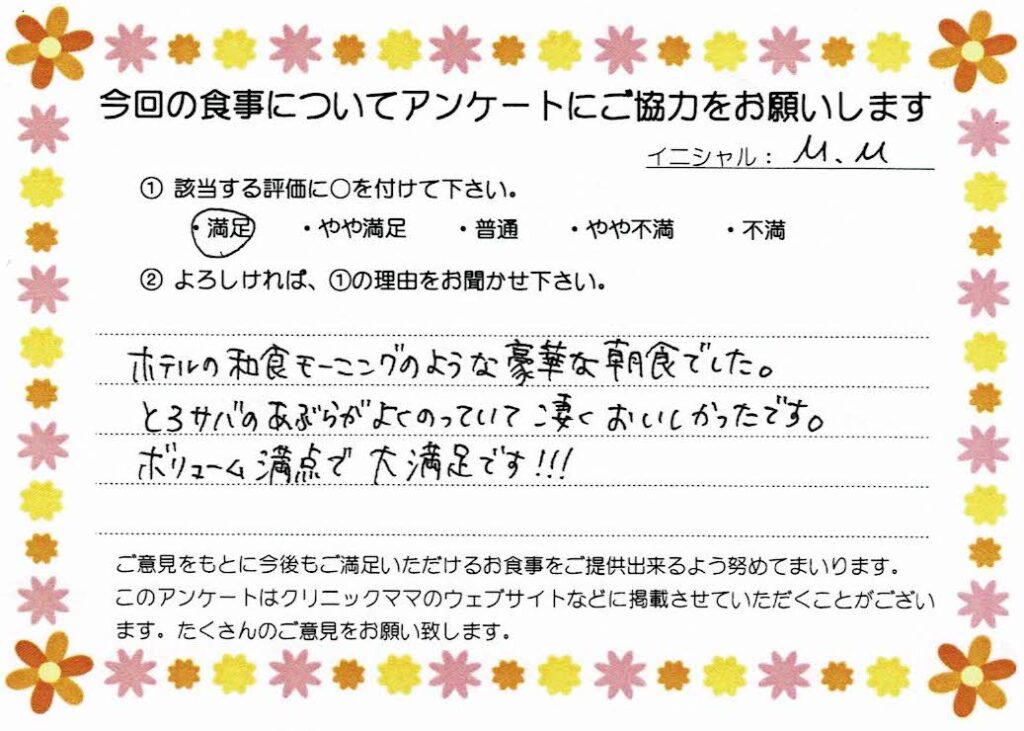 今回の食事についてアンケートにご協力をお願いします
イニシャル： M.M
① 該当する評価に〇を付けて下さい。
・満足 ・やや満足 ・普通 ・やや不満 ・不満
② よろしければ、①の理由をお聞かせ下さい。
ホテルの和食モーニングのような豪華な朝食でした。
とろサバのあぶらがよくのっていて凄くおいしかったです。
ボリューム満点で大満足です!!!
ご意見をもとに今後もご満足いただけるお食事をご提供出来るよう努めてまいります。
このアンケートはクリニックママのウェブサイトなどに掲載させていただくことがござい
ます。たくさんのご意見をお願い致します。